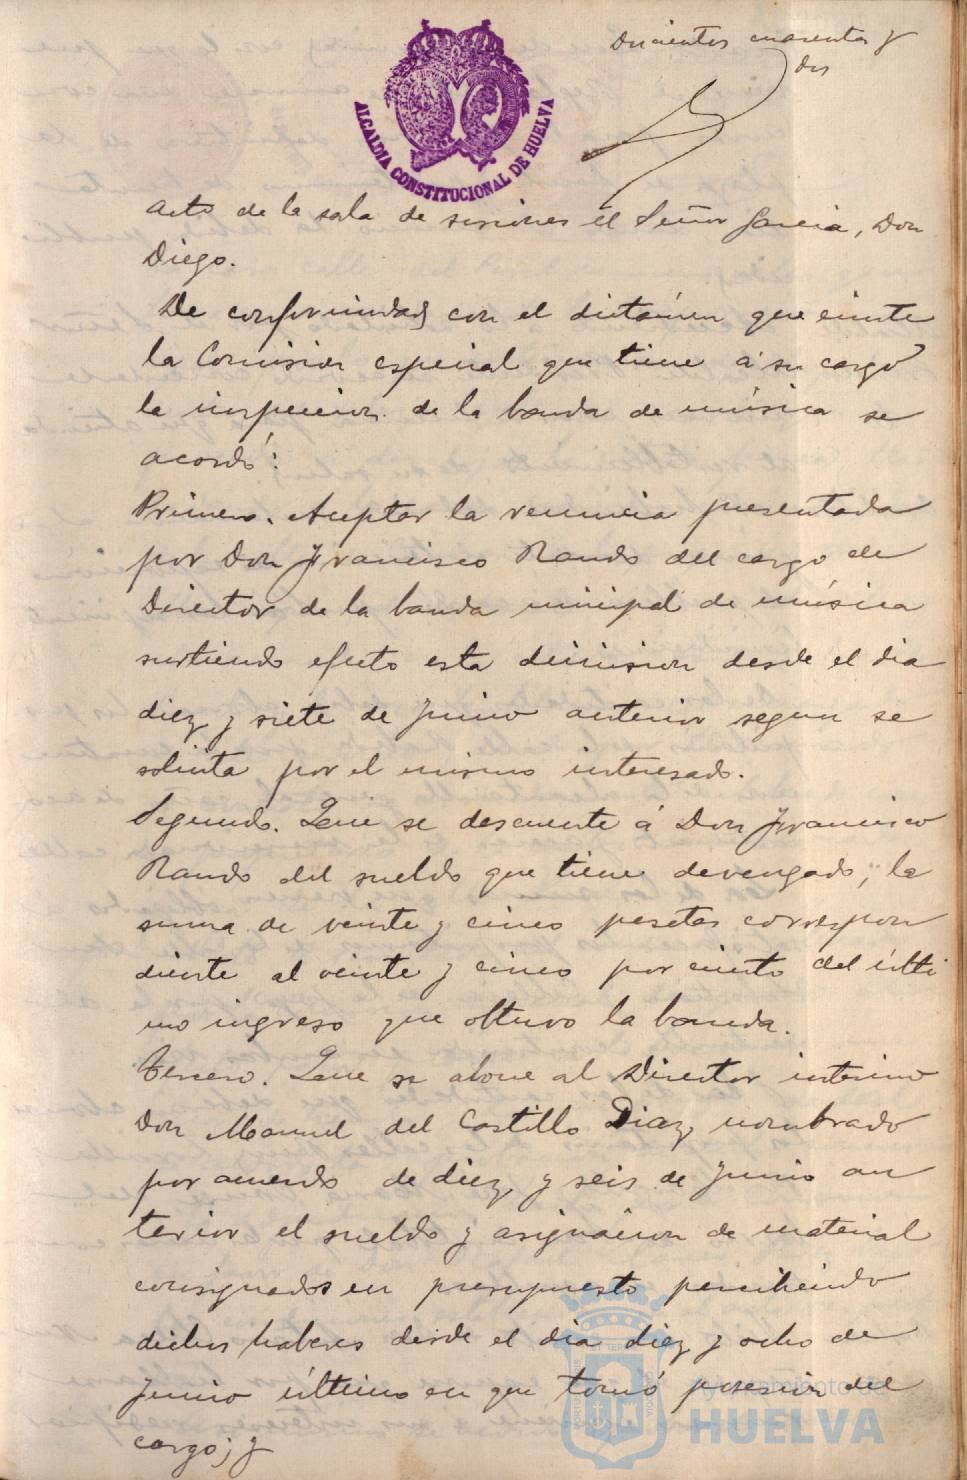 Ducientos cuarenta y
dos
ALCALDIA CONSTITUCIONAL DE HUELVA
acto de la sala de sesiones el Señor Garcia, Don
Diego.
De conformidad con el dictámen que emite
la Comision especial que tiene á su cargo
la inspeccion de la banda de música se
acordó:
Primero. Aceptar la renuncia presentada
por Don Francisco Rando del cargo de
Director de la banda municipal de música
surtiendo efecto esta dimision desde el dia
diez y siete de Junio anterior segun se
solicita por el mismo interesado.
Segundo. Que se descuente á Don Francisco
Rando del sueldo que tiene devengado, la
suma de veinte y cinco pesetas correspon
diente al veinte y cinco por ciento del últi
mo ingreso que obtuvo la banda.
Tercero. Que se abone al Director interino
Don Manuel del Castillo Diaz, nombrado
por acuerdo de diez y seis de Junio an
terior el sueldo y asignacion de material
consignados en presupuesto percibiendo
dichos haberes desde el dia diez y ocho de
Junio último en que tomó posesion del
cargo; y
Ayuntamiento de
HUELVA